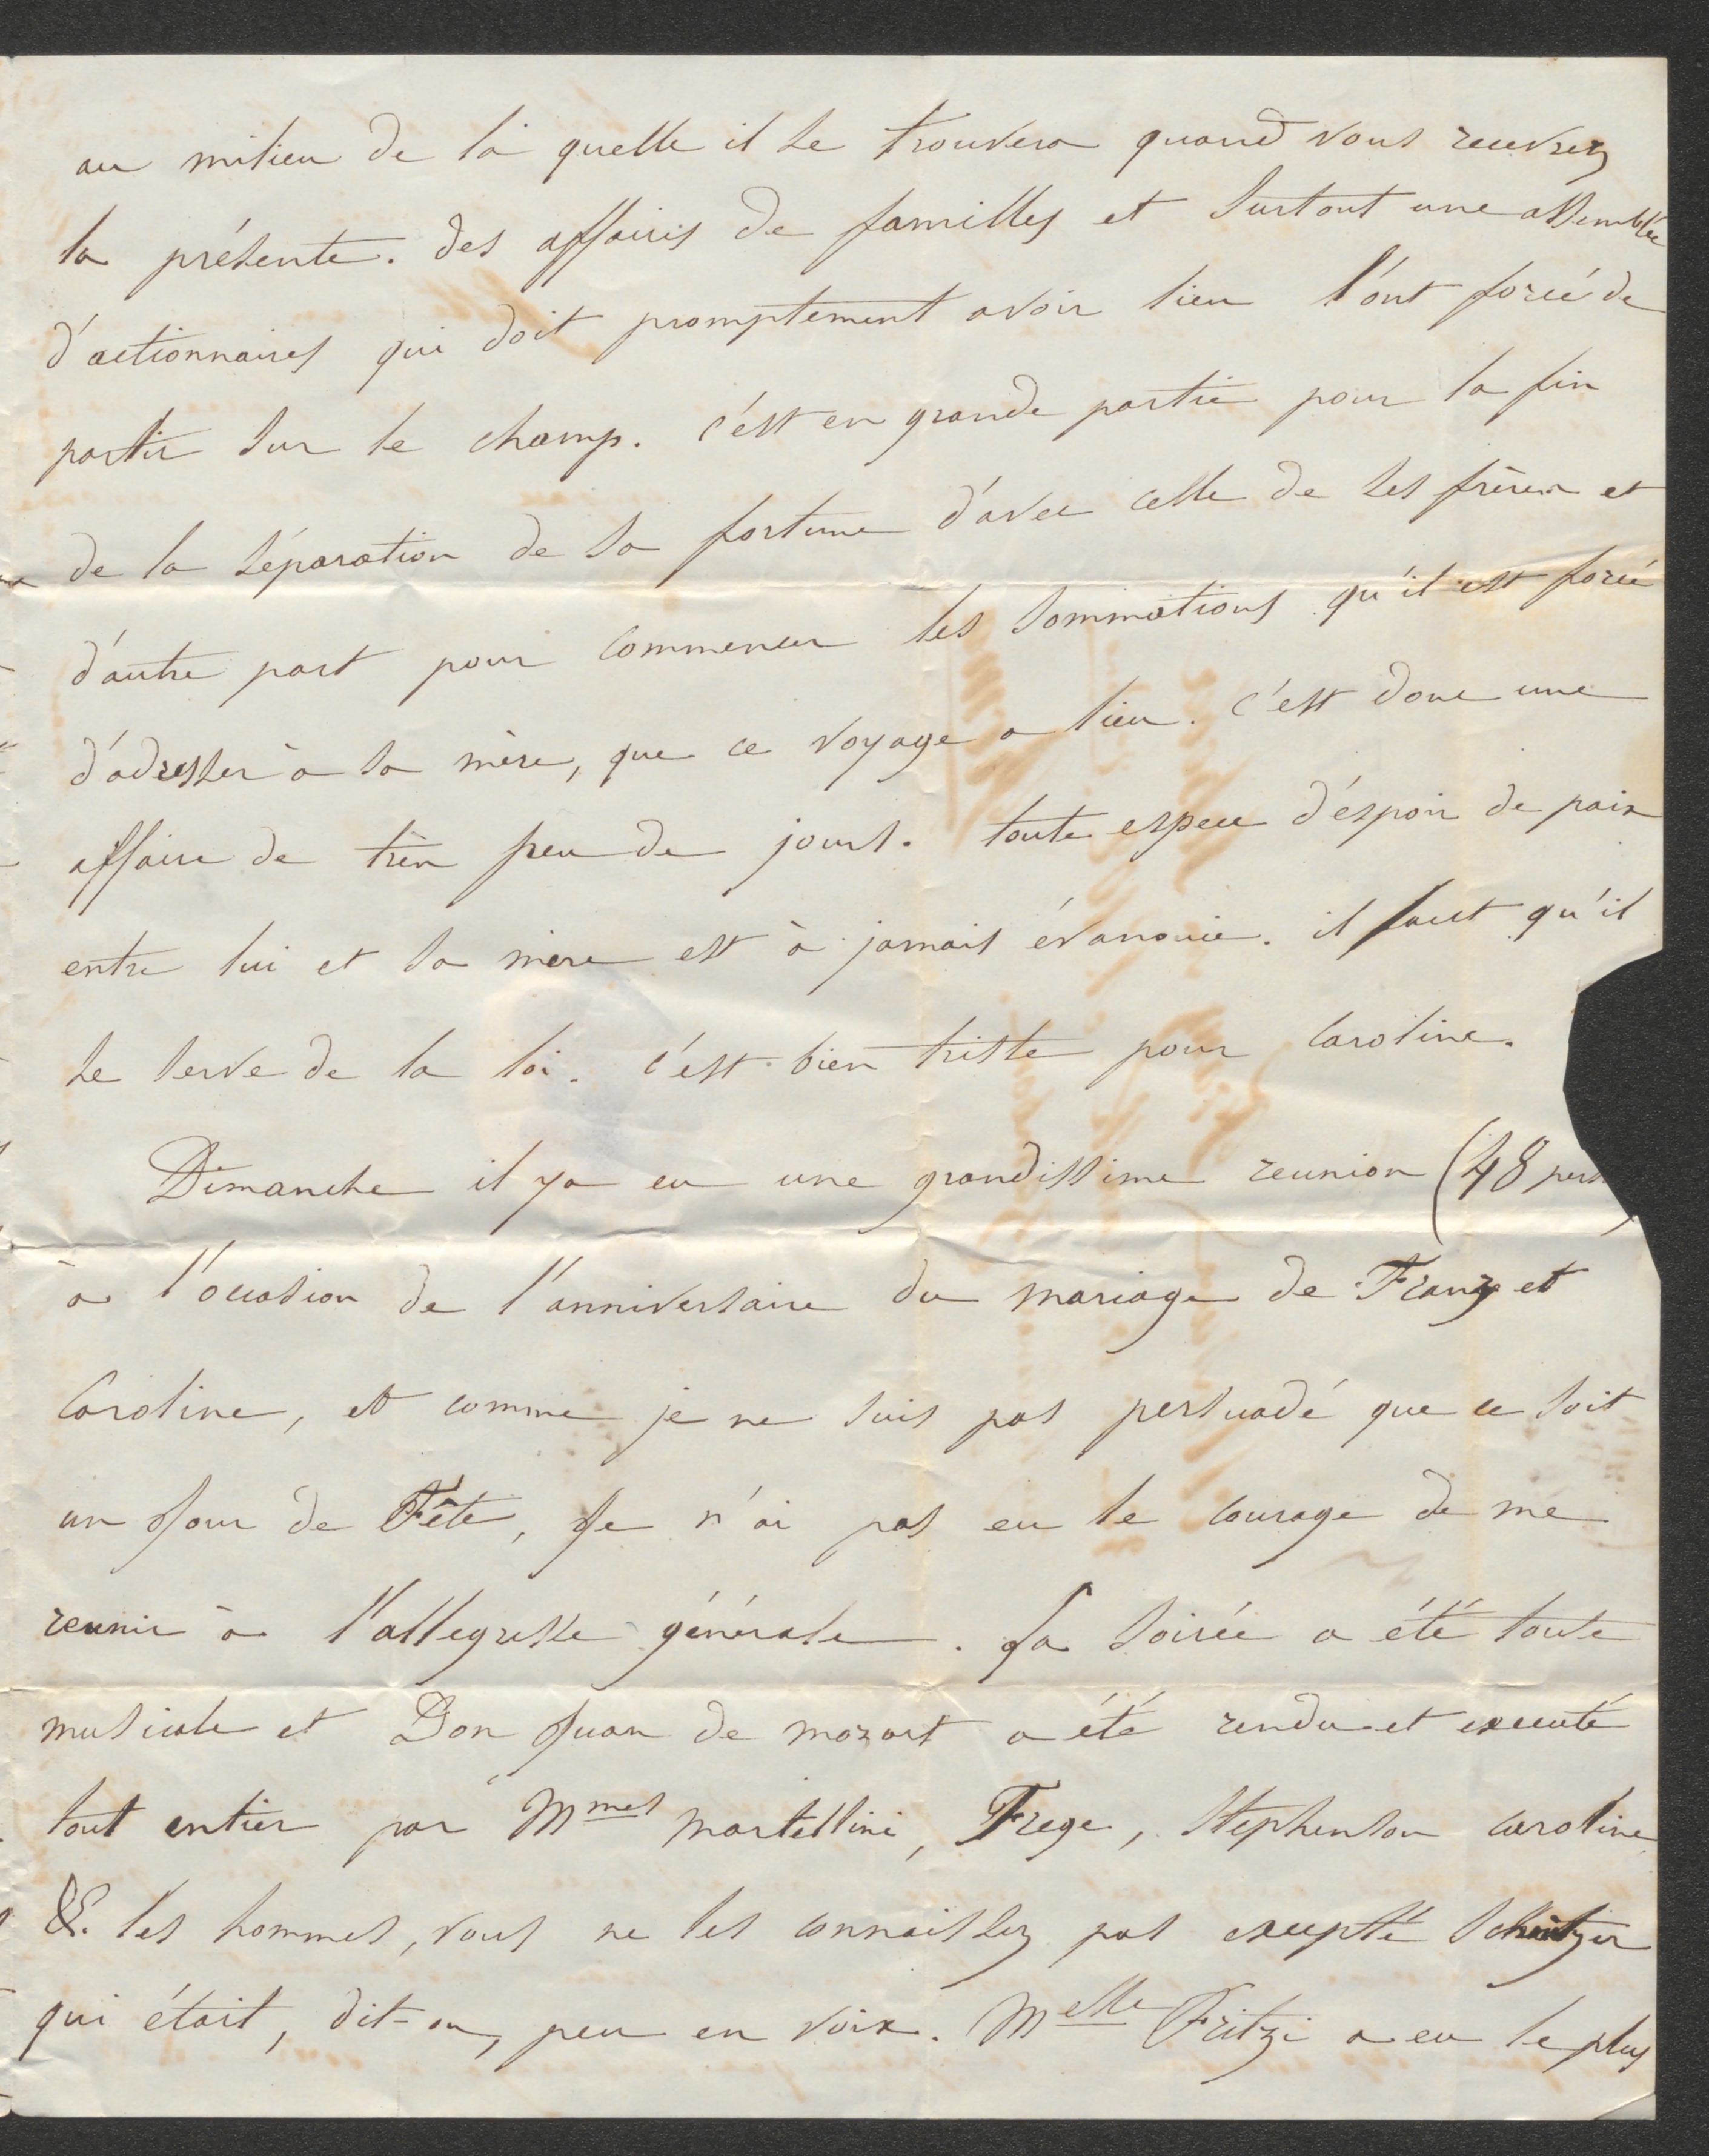 au milieu de la quelle il se trouvera quand vous recevrez
la présente. des affaires de familles et surtout une assemblée
d'actionnaires qui doit promptement avoir lieu l'ont forcé de
partir sur le champ. c'est en grande partie pour la fin
de la séparation de sa fortune d'avec celle de ses frères et
d'autre part pour commencer les sommations qu'il est forcé
d'adresser à sa mère, que ce voyage a lieu. c'est donc une
affaire de très peu de jours. toute espece d'éspoir de paix
entre lui et sa mère est à jamais évanouie. il faut qu'il
se serve de la loi. c'est bien triste pour Caroline.
Dimanche il y a eu une grandissime reunion (48 pers
à l'occasion de l'anniversaire du mariage de Franz et
Caroline, et comme je ne suis pas persuadé que ce soit
un Jour de Fête, Je n'ai pas eu le courage de me
reunir à l'allegresse générale. La soirée a été toute
musicale et Don Juan de mozart a été rendu et executé
tout entier par Mmes Martellini, Frege, Stephenson Caroline
&. les hommes, vous ne les connaissez pas excepté
qui était, dit-on, peu en voix. Melle Fritzi a eu le plus